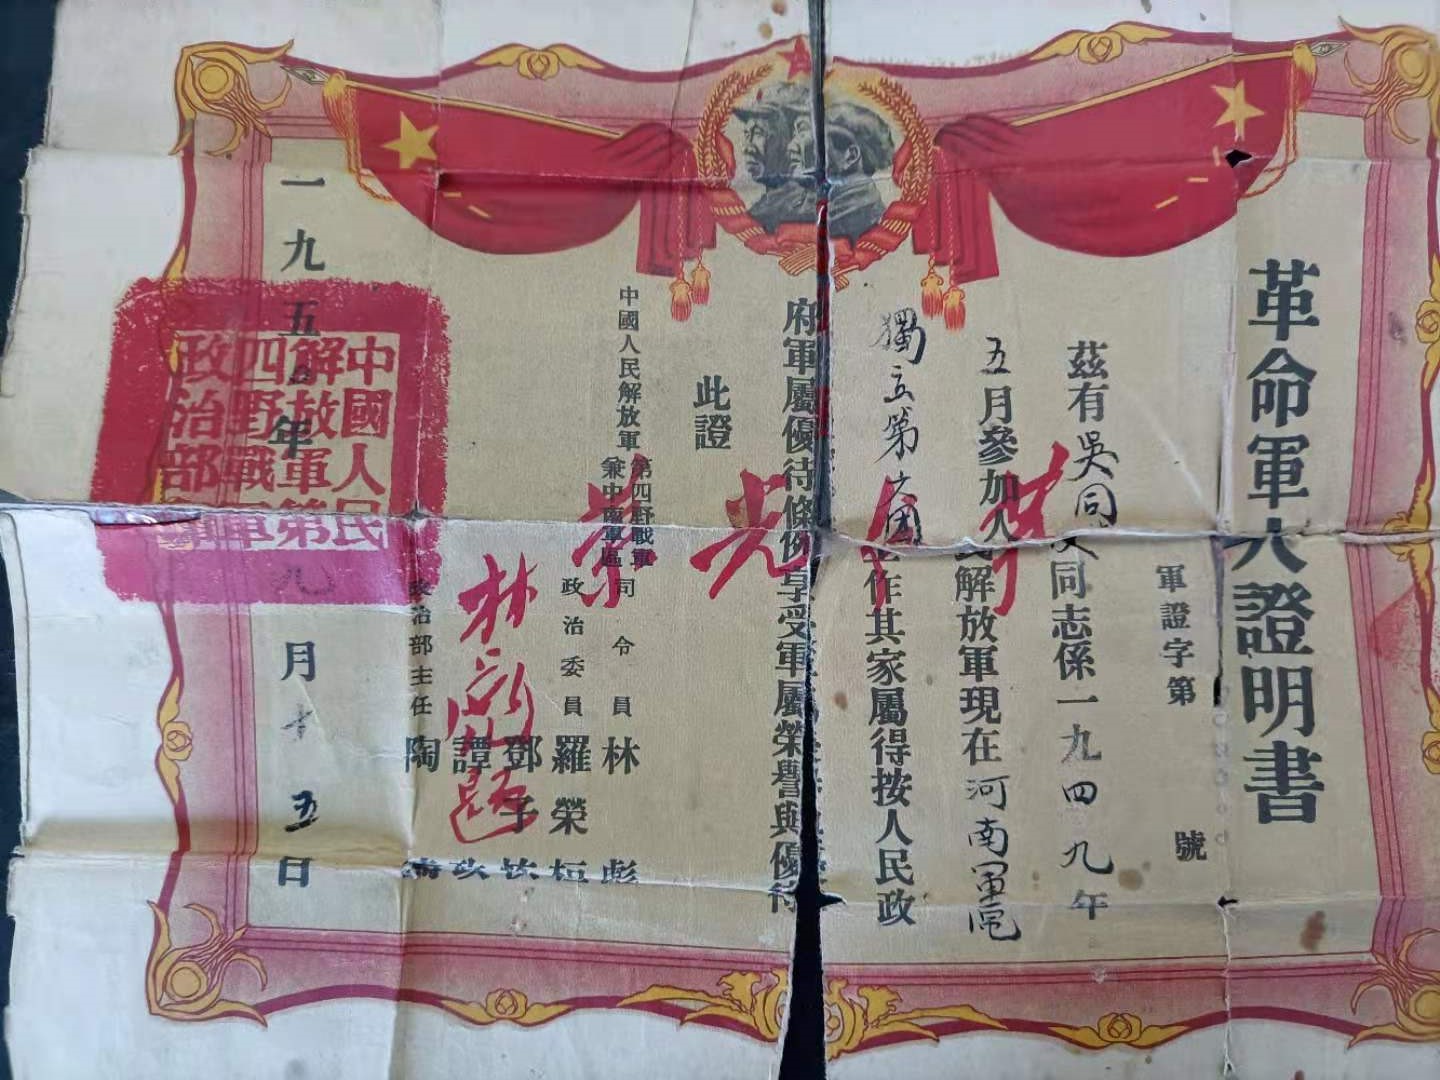 革命軍人證明書
軍證字第 號
茲有吳同文同志係一九四九年
五月參加人民解放軍現在河南軍區
獨立第六團工作其家屬得按人民政
府軍屬優待條例享受軍屬榮譽與優待
此證
光榮
中國人民解放軍第四野戰軍兼中南軍區
司令員林彪
政治委員羅榮桓
鄧子恢
譚政
政治部主任陶鑄
林彪題
一九五〇年九月十五日
中國人民
解放軍第
四野戰軍
政治部